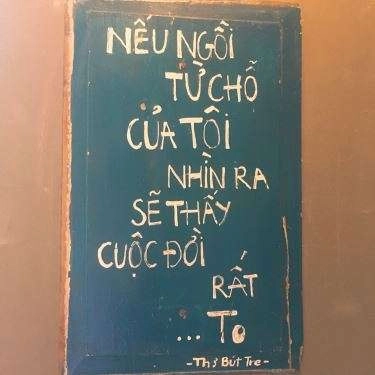 NẾU NGỒI
TỪ CHỖ
CỦA TÔI
NHÌN RA
SẼ THẤY
CUỘC ĐỜI
RẤT
... To
- Thơ Bút Tre -